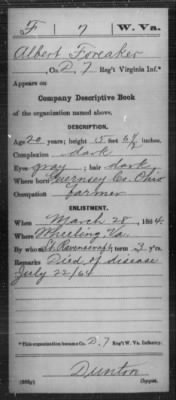 F 7 W. Va.
Albert Foreaker
, Co. D, 7 Reg't Virginia Inf.*
Appears on
Company Descriptive Book
of the organization named above.
DESCRIPTION.
Age 20 years; height 5 feet 6½ inches.
Complexion dark
Eyes gray ; hair dark
Where born Guernsey Co. Ohio
Occupation Farmer
ENLISTMENT.
When March 28, 1864.
Where Wheeling Va.
By whom ; term 3 y'rs.
Remarks Died of disease
July 22/64
*This organization became Co. D, 7 Reg't W. Va. Infantry.
Dunton
Copyist.